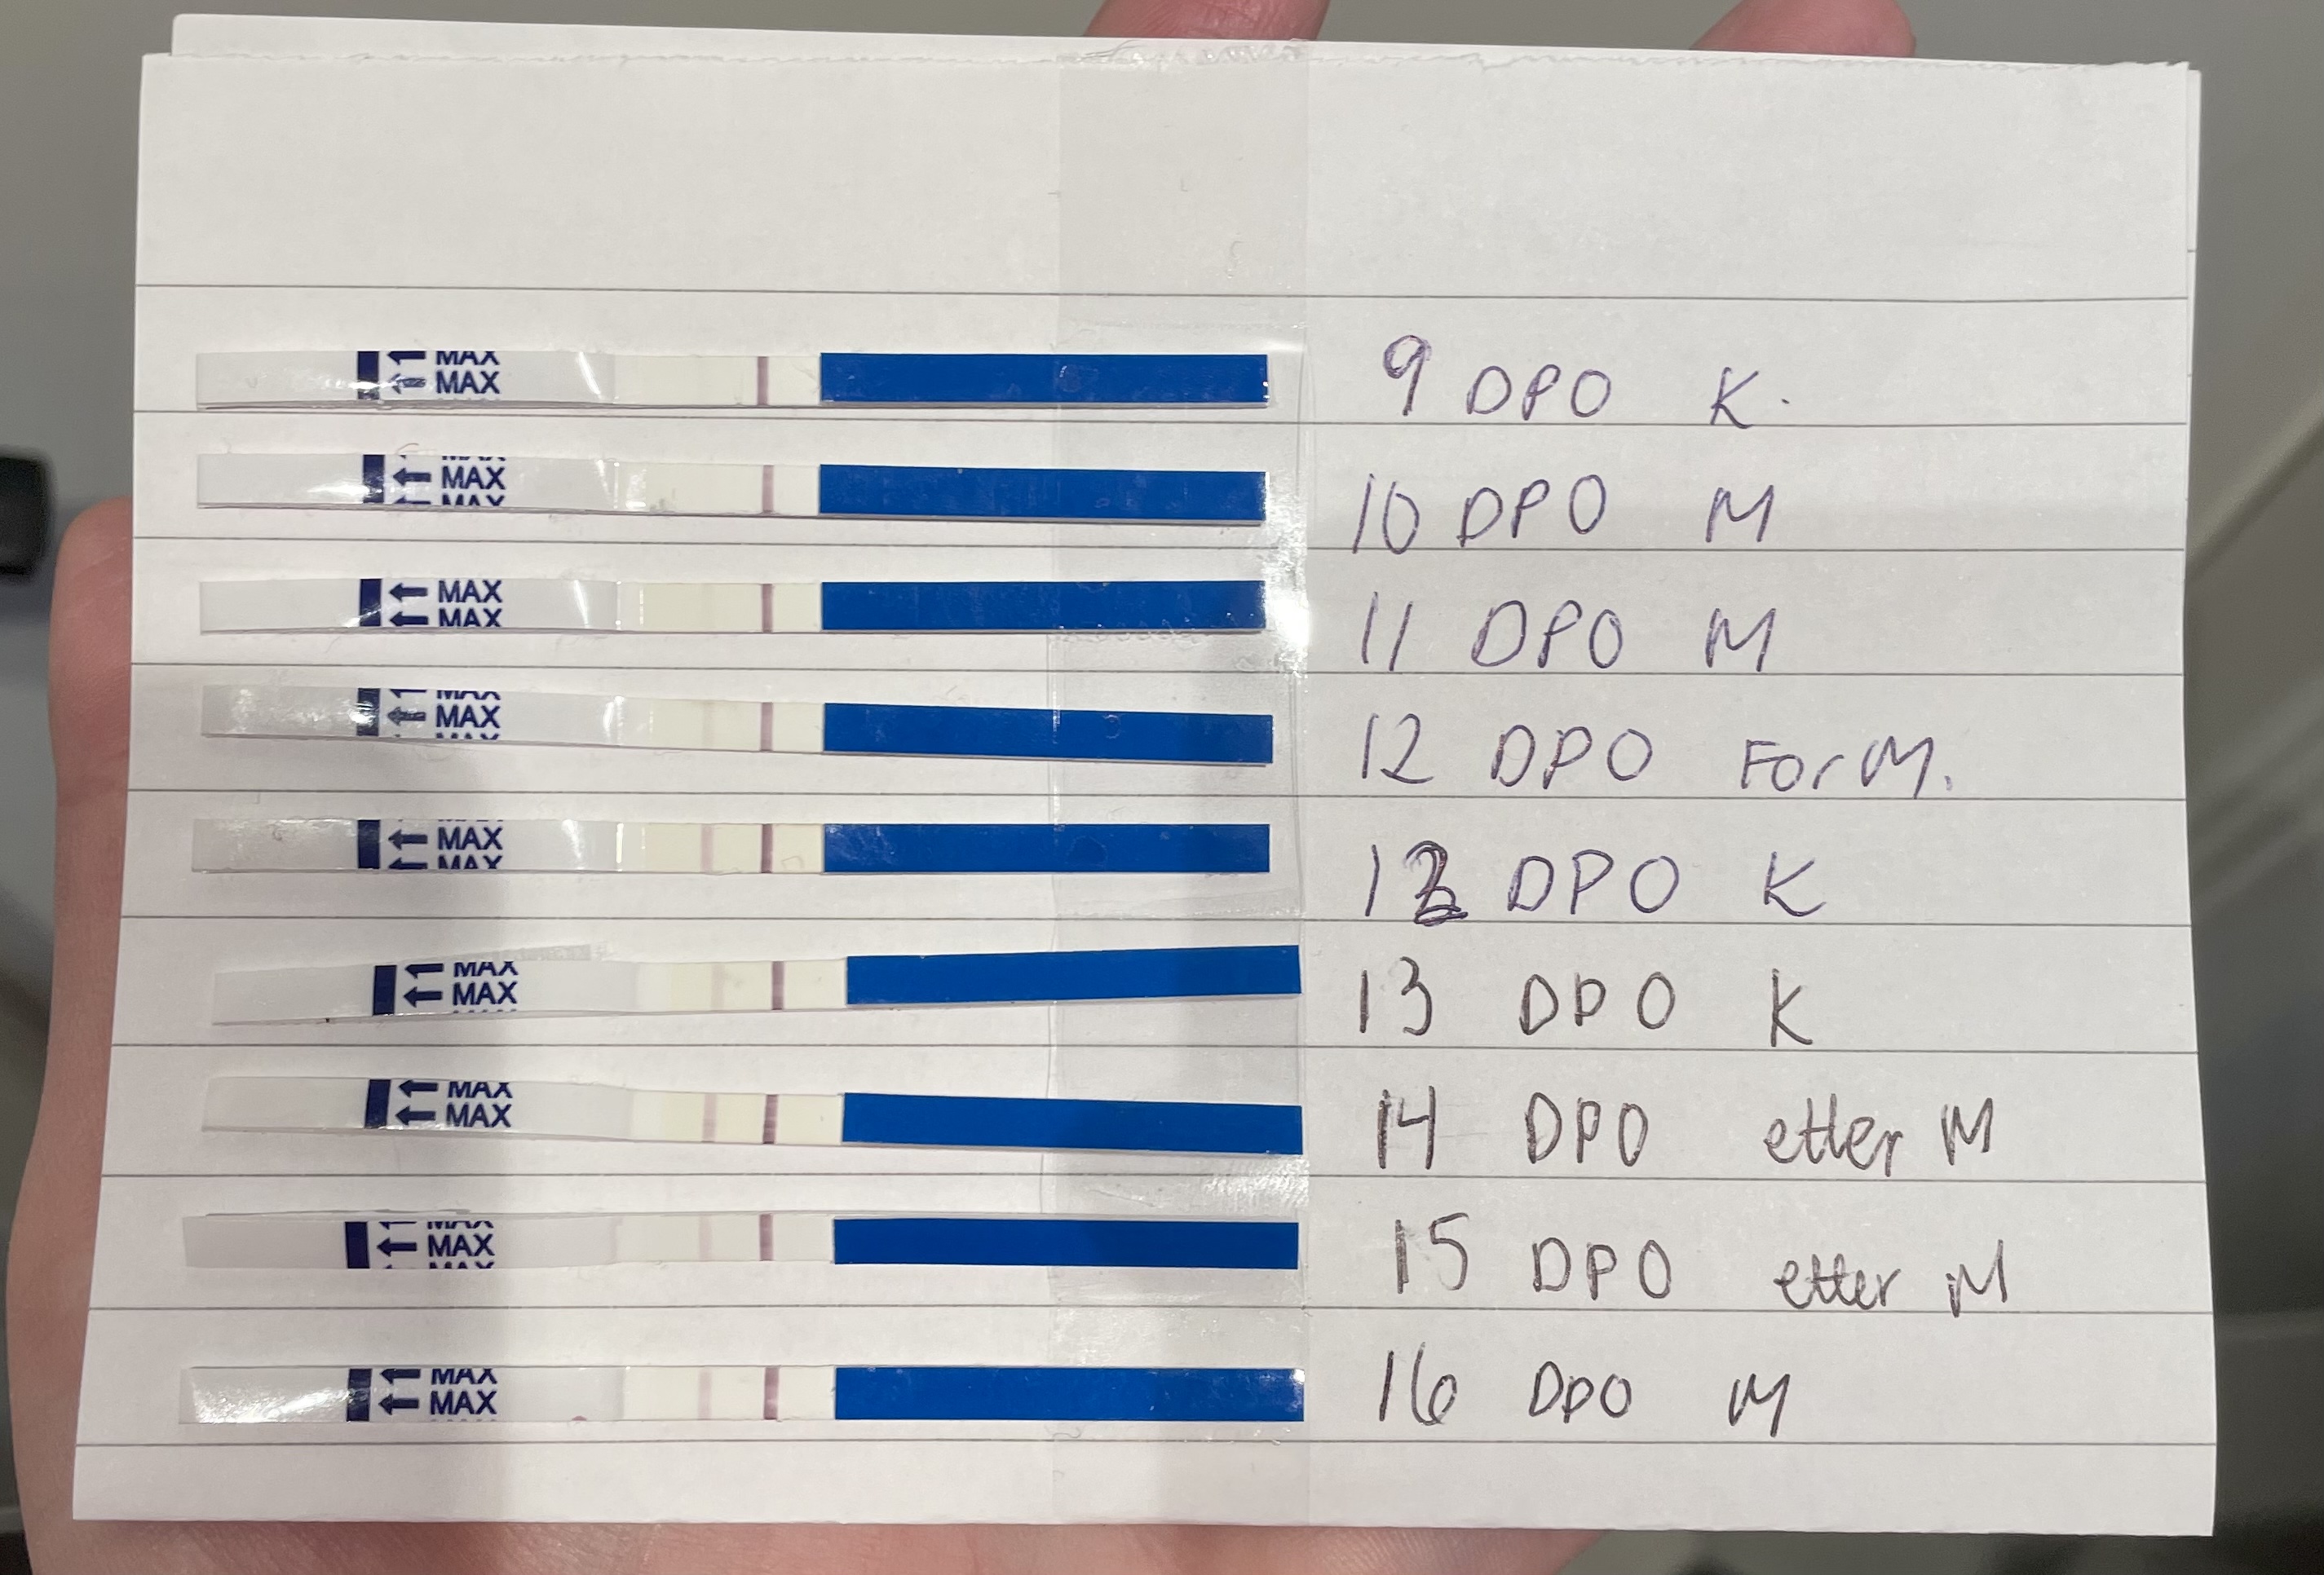 MAX
MAX
9 DPO K.
MAX
MAX
MAX
10 DPO M
MAX
MAX
11 DPO M
MAX
MAX
12 DPO For M.
MAX
MAX
MAX
12 DPO K
MAX
MAX
13 DPO K
MAX
MAX
14 DPO etter M
MAX
MAX
MAX
15 DPO etter M
MAX
MAX
16 DPO M